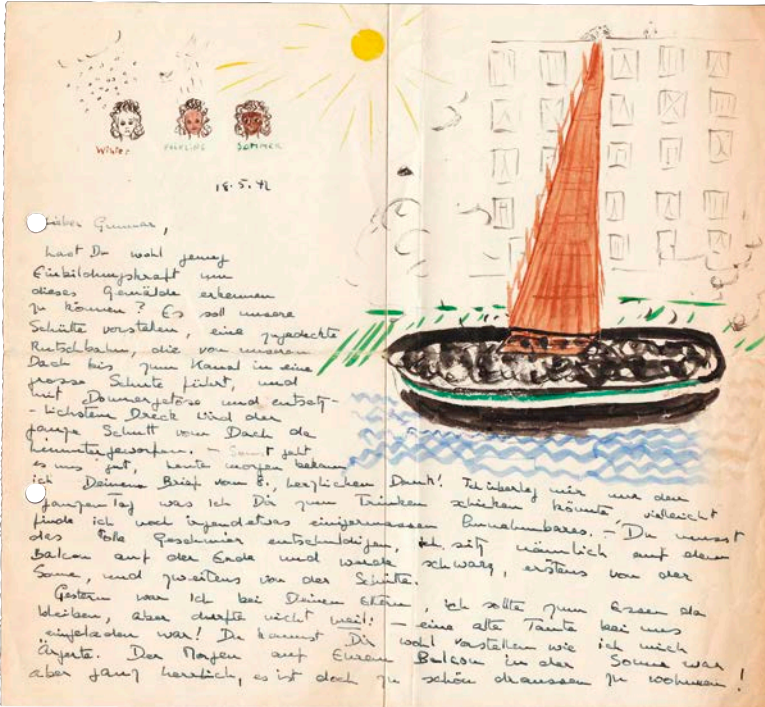 Winter FRÜHLING SOMMER
18.5.42
Lieber Gunnar,
hast Du wohl genug
Einbildungskraft um
dieses Gemälde erkennen
zu können? Es soll unsere
Schütte vorstellen, eine zugedeckte
Rutschbahn, die von unserem
Dach bis zum Kanal in eine
grosse Schute führt, und
mit Donnergetöse und entsetz-
-lichstem Dreck wird der
ganze Schutt vom Dach da
heruntergeworfen. – Sonst geht
es uns gut, heute morgen bekam
ich Deinen Brief vom 8., herzlichen Dank! Ich überleg mir nur den
ganzen Tag was ich Dir zum Trinken schicken könnte vielleicht
finde ich noch irgendetwas einigermassen Annehmbares. – Du musst
das tolle Geschmier entschuldigen, ich sitz nämlich auf dem
Balcon auf der Erde und werde schwarz, erstens von der
Sonne, und zweitens von der Schütte.
Gestern war ich bei Deinen Eltern, ich sollte zum Essen da
bleiben, aber durfte nicht weil: – eine alte Tante bei uns
eingeladen war! Du kannst Dir wohl vorstellen wie ich mich
ärgerte. Der Morgen auf Eurem Balcon in der Sonne war
aber ganz herrlich, es ist doch zu schön draussen zu wohnen!